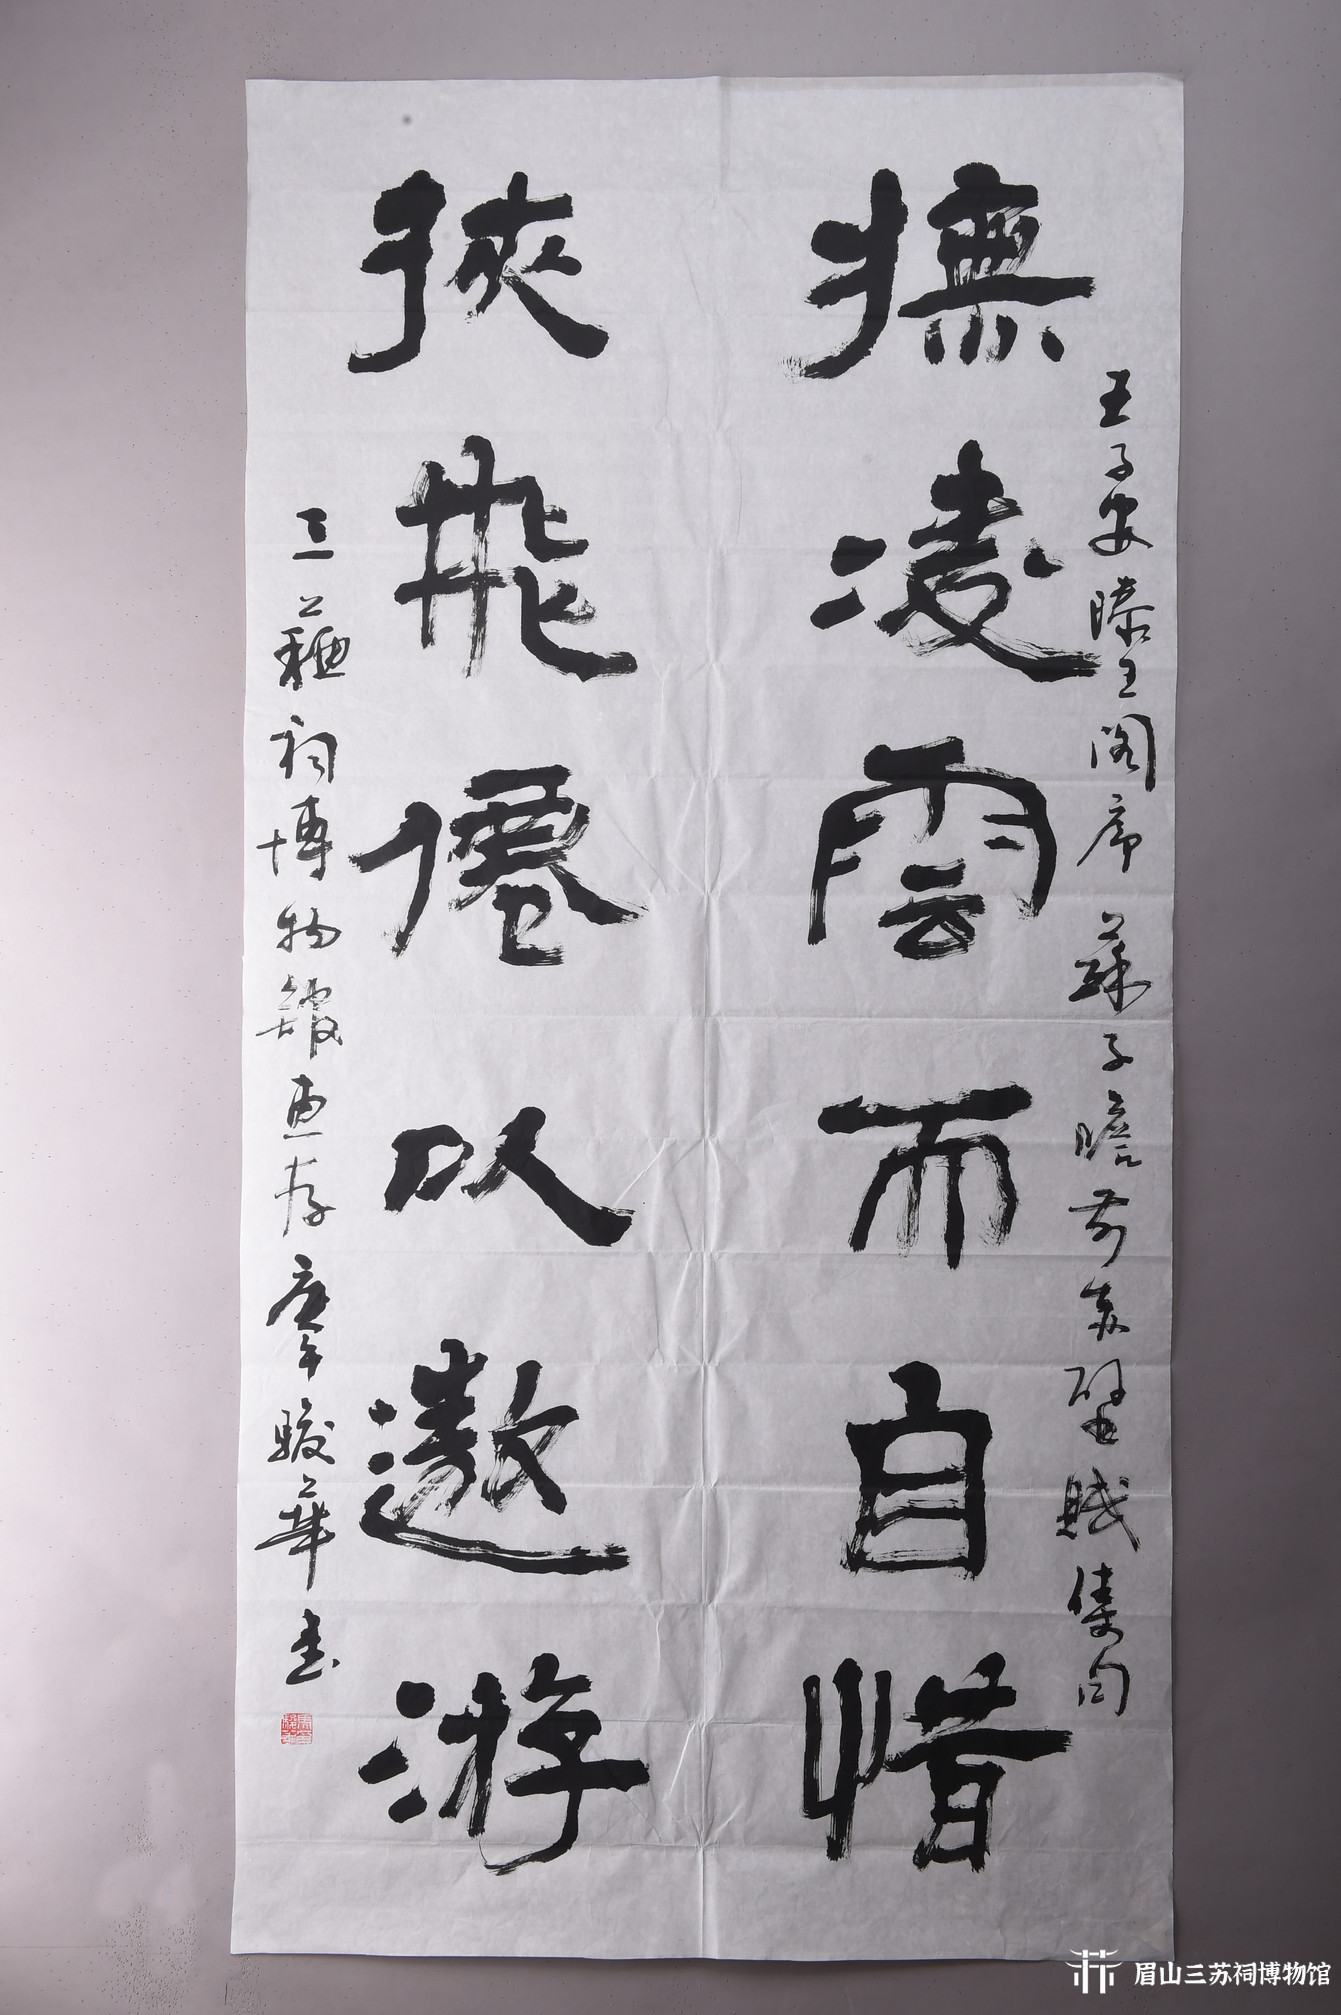 王子安滕王阁序 蘇子瞻前赤壁賦集句
撫凌雲而自惜
挾飛僊以遨游
三蘇祠博物館惠存 庚午駿華書
眉山三苏祠博物馆